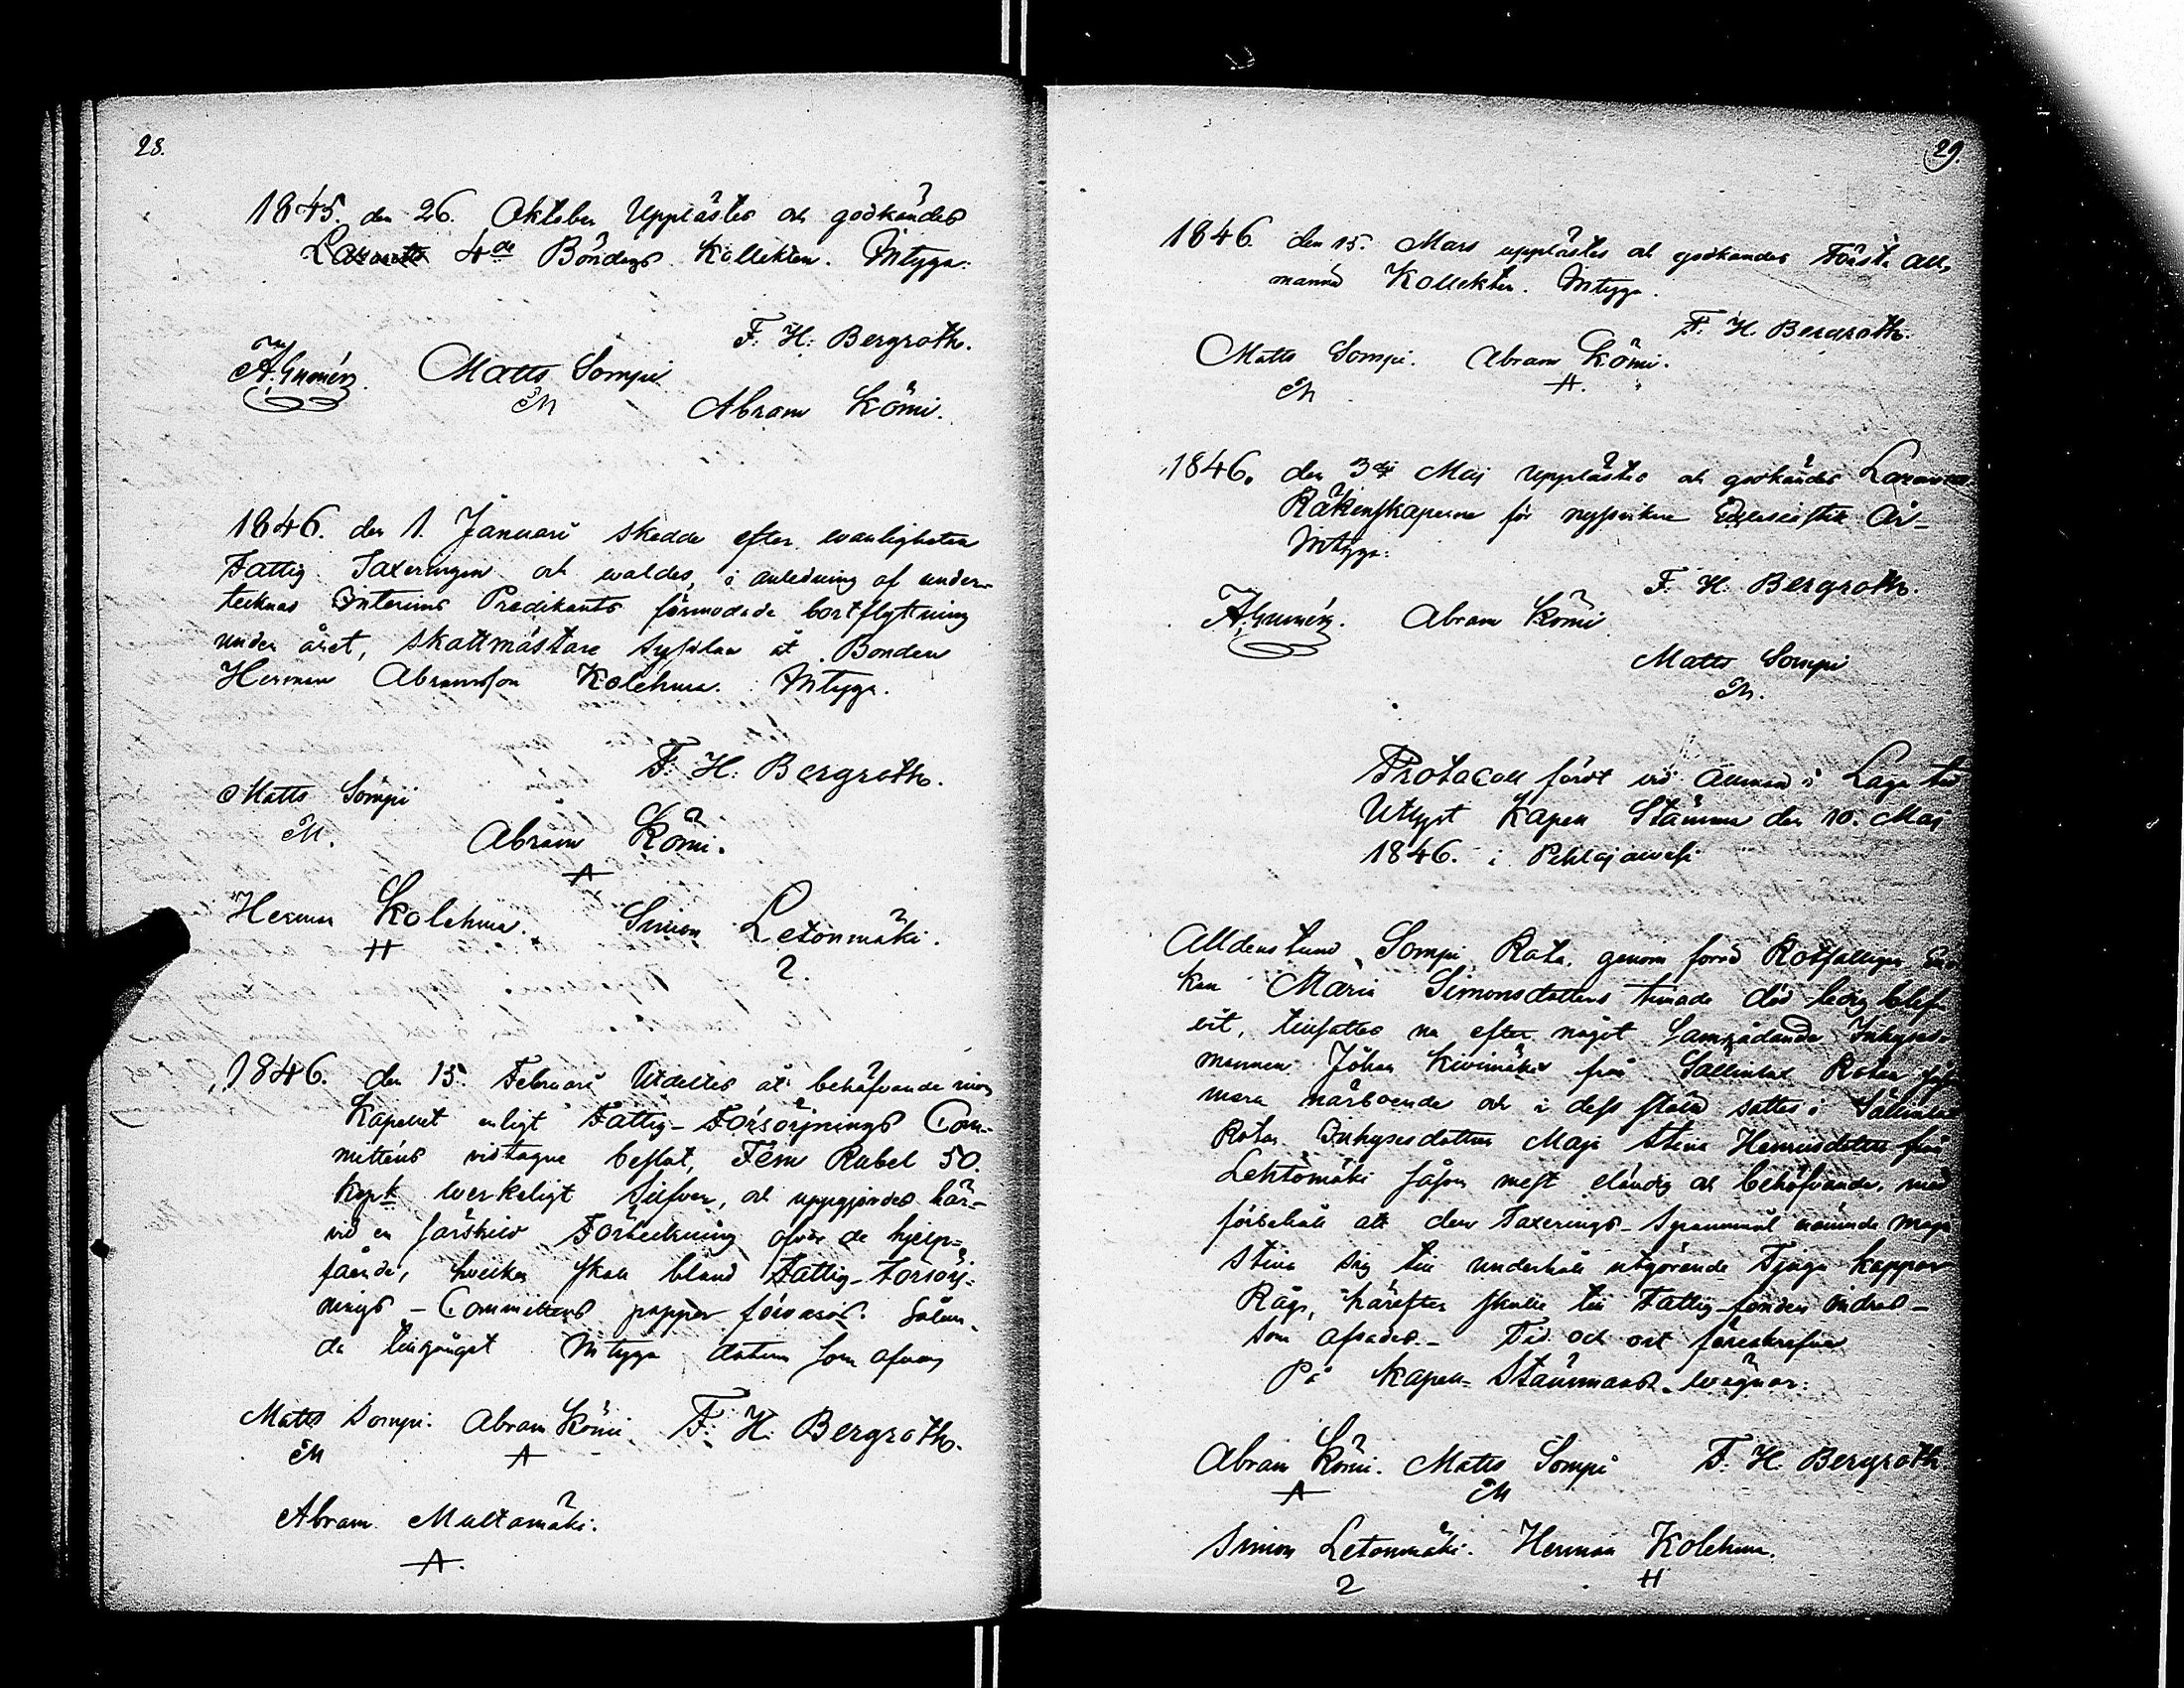 28.
1845. den 26. Oktober Upplästes och godkändes
4de Böndags Kollekten. Intyga:
F. H. Bergroth.
Matts Sompi
M
Abram Kömi.
1846. den 1. Januari skedde efter wanligheten
Fattig Taxeringen och waldes, i anledning af under-
tecknad Interims Predikants förmodade bortflyttning
under året, skattmästare sysslan åt Bonden
Herman Abramsson Kolehma. Intyga.
F. H. Bergroth.
Matts Sompi
M.
Abram Kömi.
A
Herman Kolehma.
H
Simon Letonmäki.
2.
1846. den 15. Februari Utdeltes åt behöfvande inom
Kapellet enligt Fattig-Försörjnings Com-
mitténs vidtagne beslut, Fem Rubel 50.
Kopk werkeligt silfver, och uppgjordes här-
vid en särskild Förteckning öfver de hjelp-
fående, hvilken skall bland Fattig-Försörj-
nings-Committéns papper förvaras. Sålun-
da tillgånget Intyga datum som ofvan
Matts Sompi. Abram Kömi F. H. Bergroth.
M A
Abram Multamäki.
A.
29.
1846. den 15. Mars upplästes och godkändes Första all-
männa Kollekten. Intyga.
F. H. Bergroth.
Matts Sompi. Abram Kömi.
M A.
1846. den 3dje Maj Upplästes och godkändes
Räkenskaperne för Ecclesiastik År-
Intyga:
F. H. Bergroth.
Abram Kömi
Matts Sompi
M.
Protocoll fördt vid Allmän i Laga tid
Utlyst Kapell Stämma den 10. Maj
1846. i
Alldenstund Sompi Rota genom förra Rotfattiges En-
kan Maria Simonsdotters timade död ledig blif-
vit, tillsattes nu efter något Samrådande Inhyses-
mannen Johan Kivimäki från Rotan såsom
mera närboende och i dess ställe sattes i
Rotan Inhysesdottren Maja Stina Henricsdotter från
Lehtomäki såsom mest eländig och behöfvande, med
förbehåll att den Taxerings-Spannmål nämnde Maja
Stina sig till underhåll utgörande Tjugu kappar
Råg, härefter skulle till Fattig-fonden indrag-
som afsades. Tid och ort föreskrefne
På Kapell-Stämmans wägnar:
Abram Kömi. Matts Sompi F. H. Bergroth
A M
Simon Letonmäki. Herman Kolehma.
2 H